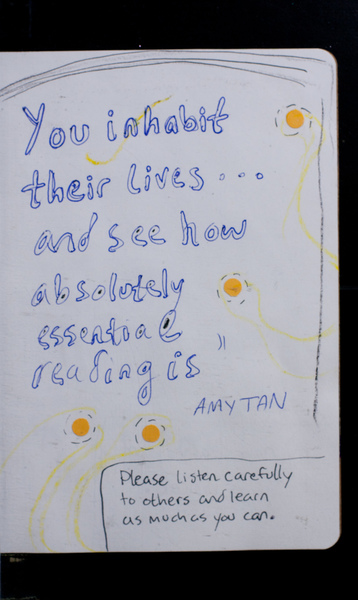 You inhabit
their lives...
and see how
absolutely
essential
reading is "
AMY TAN
Please listen carefully
to others and learn
as much as you can.